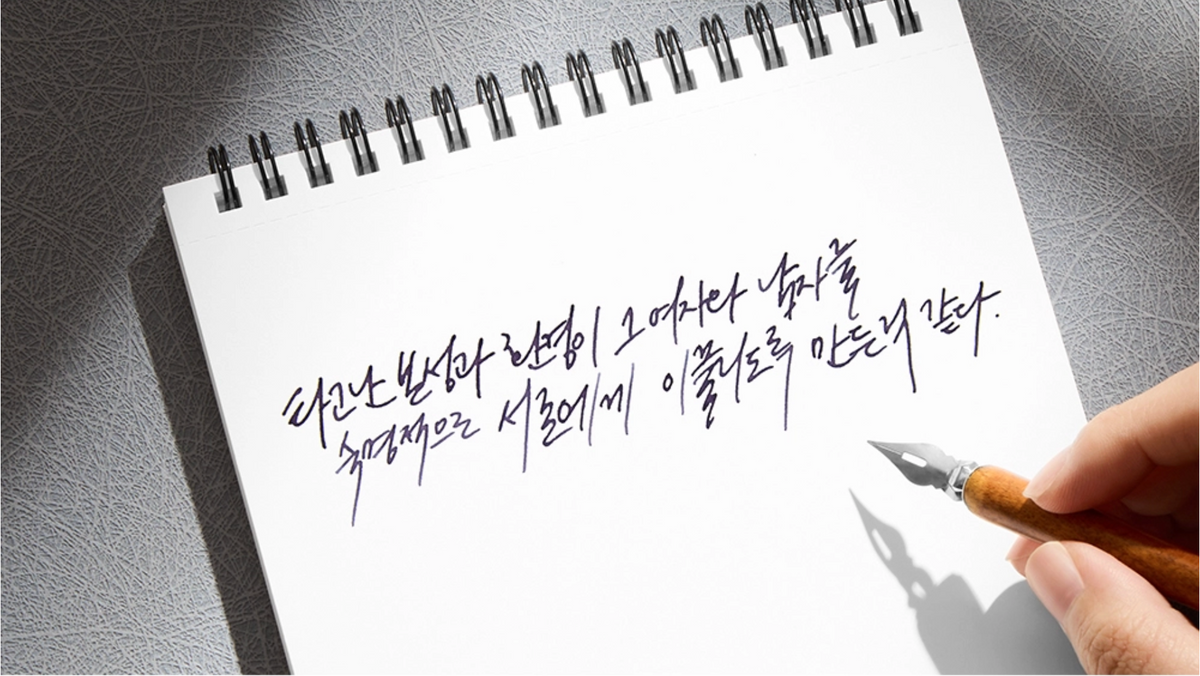 타고난 본성과 환경이 그 여자와 남자를
숙명적으로 서로에게 이끌리도록 만든 것 같다.